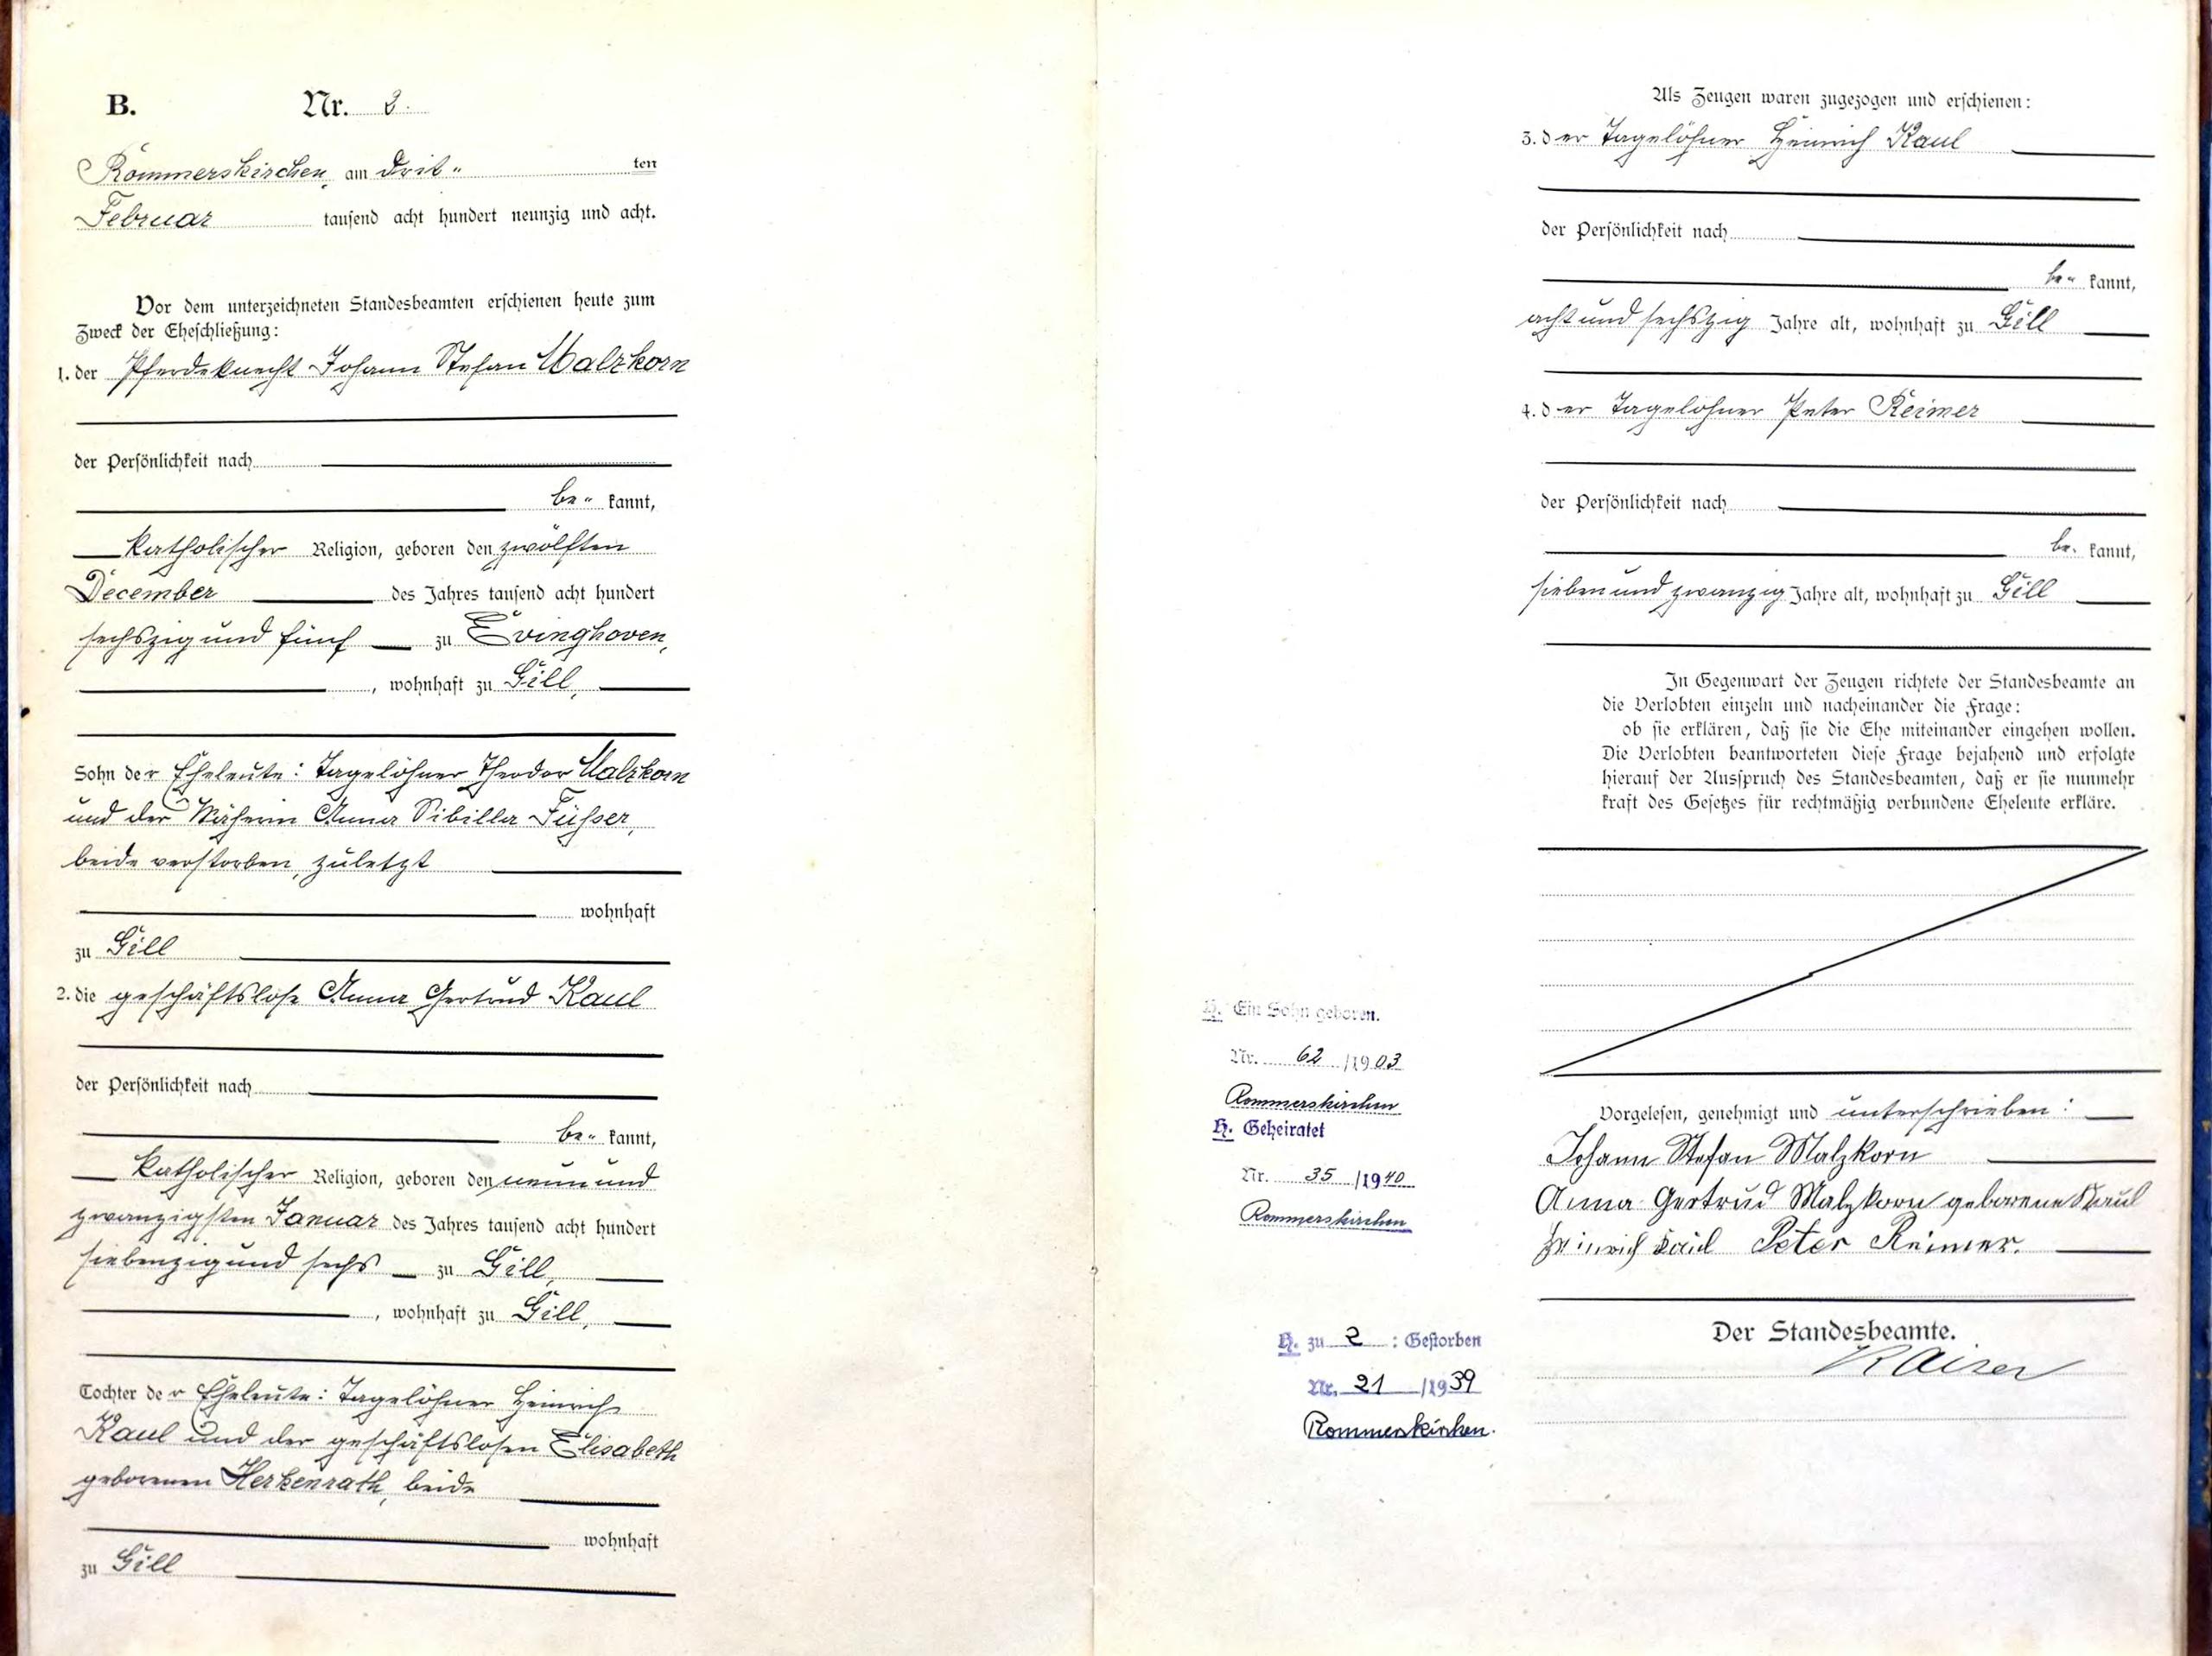 B. Nr. 2.
Rommerskirchen, am drit- ten
Februar tausend acht hundert neunzig und acht.
Vor dem unterzeichneten Standesbeamten erschienen heute zum
Zweck der Eheschließung:
1. der Pferdeknecht Johann Stefan Malzkorn
der Persönlichkeit nach
be- kannt,
katholischer Religion, geboren den zwölften
December des Jahres tausend acht hundert
sechszig und fünf zu Evinghoven,
, wohnhaft zu Gill,
Sohn der Eheleute: Tagelöhner Theodor Malzkorn
und der Näherin Anna Sibilla Füsser,
beide verstorben, zuletzt
wohnhaft
zu Gill
2. die geschäftslose Anna Gertrud Kaul
der Persönlichkeit nach
be- kannt,
katholischer Religion, geboren den neun und
zwanzigsten Januar des Jahres tausend acht hundert
siebenzig und sechs zu Gill,
, wohnhaft zu Gill,
Tochter der Eheleute: Tagelöhner Heinrich
Kaul und der geschäftslosen Elisabeth
geborenen Herkenrath, beide
wohnhaft
zu Gill
Als Zeugen waren zugezogen und erschienen:
3. der Tagelöhner Heinrich Kaul
der Persönlichkeit nach
be- kannt,
acht und sechszig Jahre alt, wohnhaft zu Gill
4. der Tagelöhner Peter Reimer
der Persönlichkeit nach
be- kannt,
sieben und zwanzig Jahre alt, wohnhaft zu Gill
In Gegenwart der Zeugen richtete der Standesbeamte an
die Verlobten einzeln und nacheinander die Frage:
ob sie erklären, daß sie die Ehe miteinander eingehen wollen.
Die Verlobten beantworteten diese Frage bejahend und erfolgte
hierauf der Ausspruch des Standesbeamten, daß er sie nunmehr
kraft des Gesetzes für rechtmäßig verbundene Eheleute erkläre.
Vorgelesen, genehmigt und unterschrieben:
Johann Stefan Malzkorn
Anna Gertrud Malzkorn geborene Kaul
Heinrich Kaul Peter Reimer.
Der Standesbeamte.
Kaiser
H. Ein Sohn geboren.
Nr. 62 /1903
Rommerskirchen
H. Geheiratet
Nr. 35 /1940
Rommerskirchen
H. zu 2 : Gestorben
Nr. 21 /1939
Rommerskirchen.